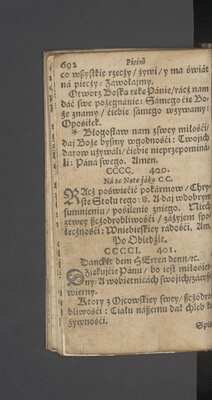 692 Pieśń
co wszystkie rzeczy / żywi / y ma świát
ná pieczy: Záwołaymy.
Otworz Boską rękę Pánie / rácz nam
dáć swe pożegnánie: Sámego cię Bo-
że známy / ciebie sámego wzywamy:
Oposiłek.
* Błogosław nam z swey miłości /
day Boże byśmy wgodności: Twoich
dárow używáli / ciebie nieprzepomina-
li: Páná swego. Amen.
CCCC. 400.
Ná tę Notę jáko CC.
RAcz poświęćić pokármow / Chry-
ste Stołu tego: A day wdobrym
sumnieniu / posilenie z niego. Niech
trzewy szczodrobliwośći / záżyjem spo-
łecznośći: Wniebieskiey rádośći. Amen
Po Obiedzie.
CCCCI. 401.
Dancket dem HErren denn / ꝛc.
DZiękuycie Pánu / bo jest miłośći-
wy: A w obietnicách swojich
wierny.
Ktory z Oycowskiey swey / szczodro-
bliwośći: Ciáłu nászemu dał chleb
żywnośći.